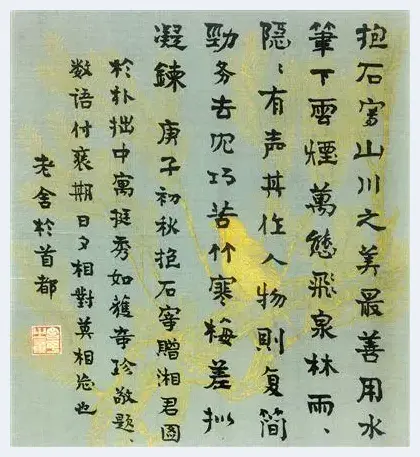 抱石寫山川之美最善用水
筆下雲煙萬態飛泉林雨、
隐〻有声其作人物則复簡
勁务去冗巧苦竹寒梅差拟
凝鍊 庚子初秋抱石寄贈湘君图
於朴拙中寓挺秀如獲奇珍敬題、
数语付期日夕相對莫相忘也
老舍於首都